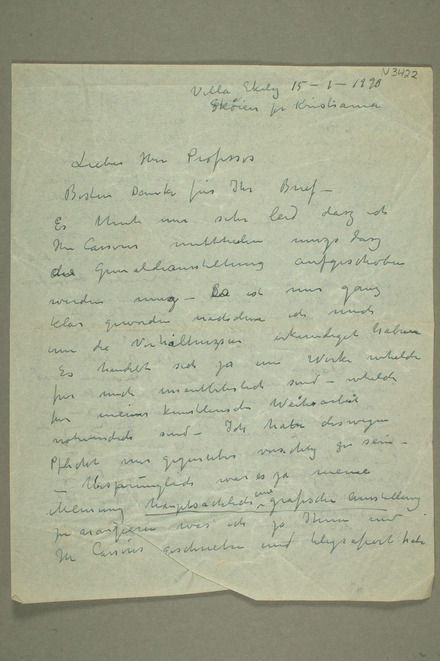 N3422
Villa Ekely 15-1-1920
Sköien pr Kristiania
Lieber Herr Professor
Besten Danke für Ihr Brief –
Es thut mir sehr leid dasz ich
Hr Cassirer mittheilen musz dasz
die Gemäldeausstellung aufgeschoben
werden musz – Es ist mir ganz
klar geworden nachdem ich mich
um die Verhältnisse erkundiget habe
Es handelt sich ja um Werke welche
für mich unentbehrlich sind – welche
für meine künstlerische Weiterarbeit
notwendich sind – Ich habe deswegen
Pflicht mir gegenüber vorsichtig zu sein –
– Ursprünglich war es ja meine
Meinung hauptsächlich eine grafische Ausstellung
zu arangieren was ich ja Ihnen und
Hr Cassirer geschrieben und telegrafiert habe